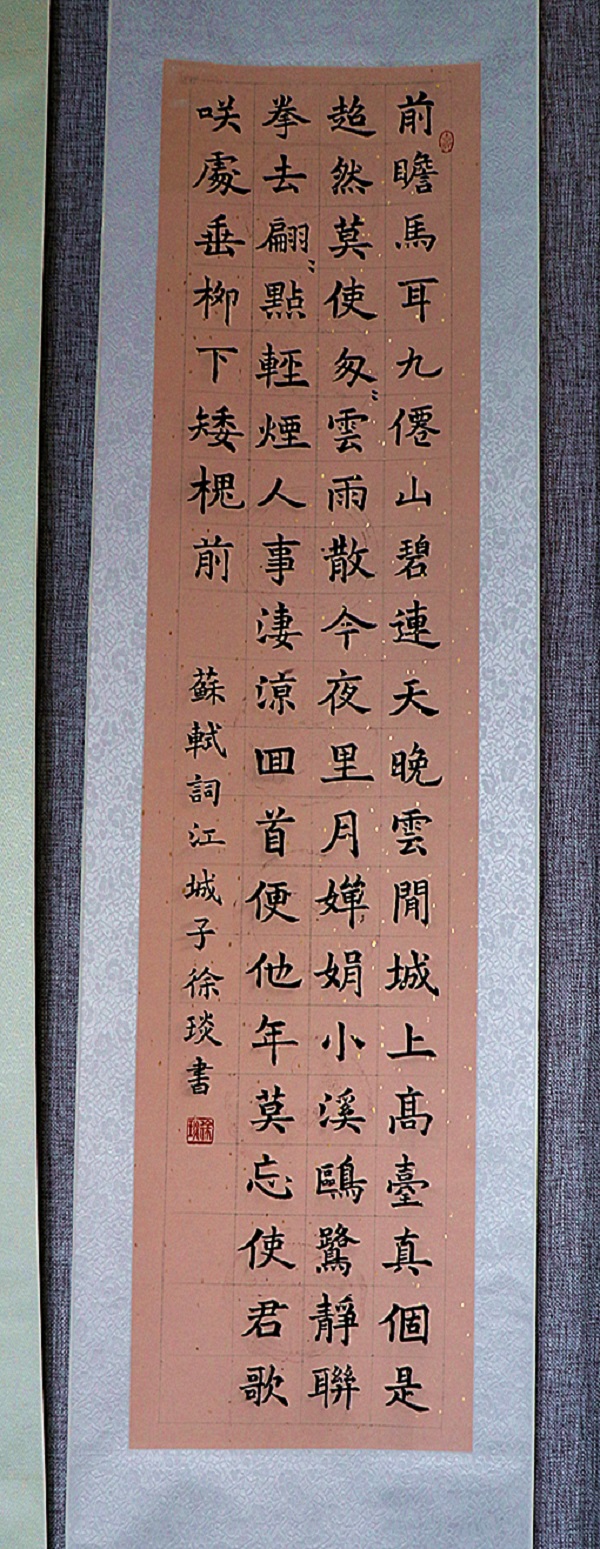 前瞻馬耳九僊山碧連天晚雲閒城上高臺真個是
超然莫使匆〻雲雨散今夜里月嬋娟小溪鷗鷺靜聯
拳去翩〻點輕煙人事淒涼回首便他年莫忘使君歌
咲處垂柳下矮槐前
蘇軾詞江城子徐琰書